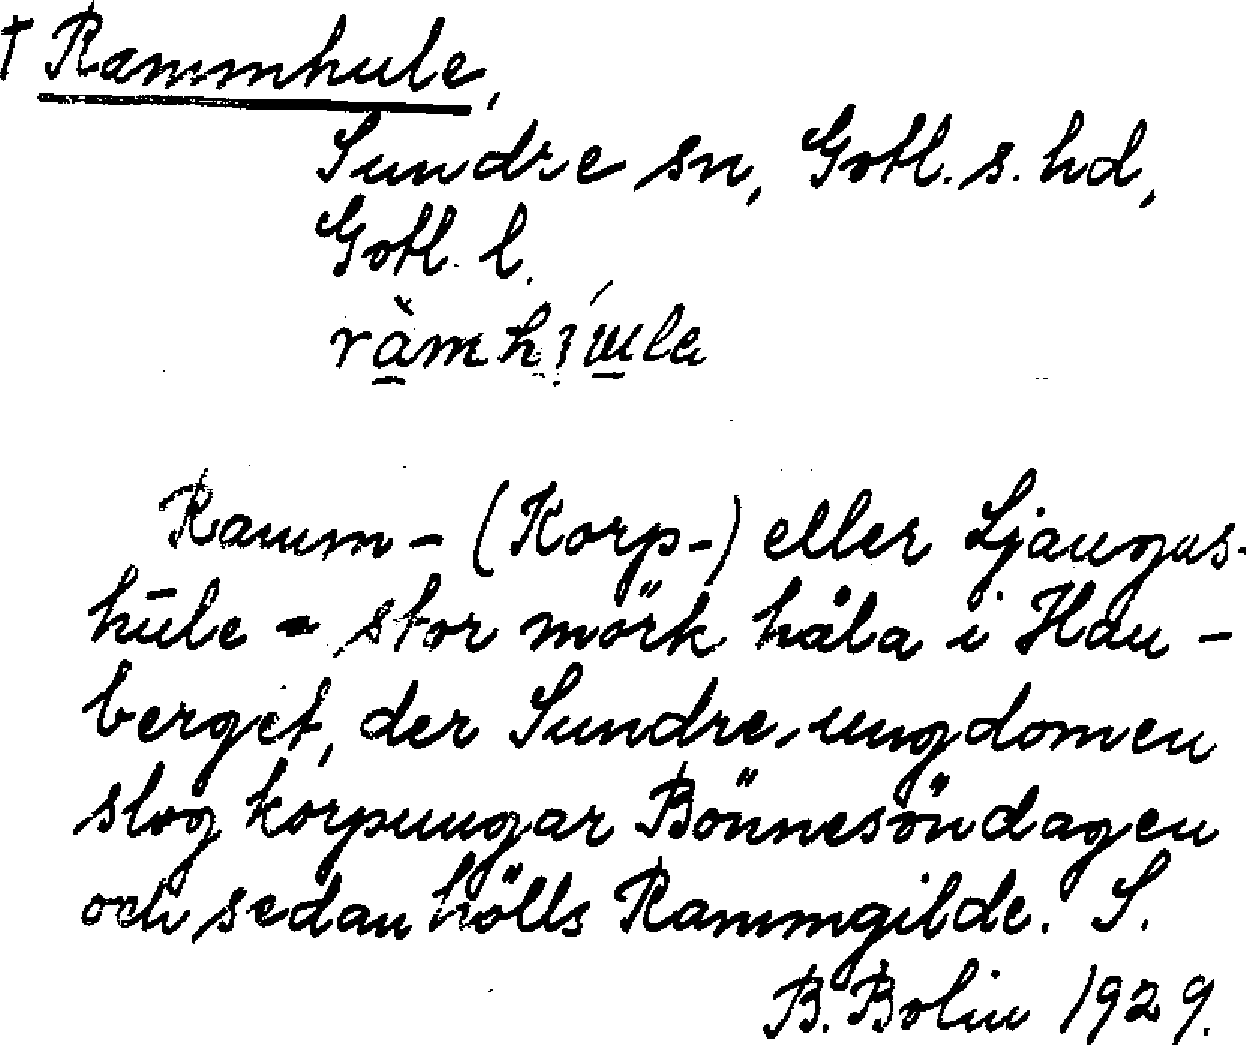 † Rammhule,
Sundre sn, Gotl. s. hd,
Gotl. l.
Ramm- (Korp-) eller Ljaugas-
hūle - stor mörk håla i Hau-
berget, der Sundre-ungdomen
slog korpungar Bönnesöndagen
och sedan hölls Rammgilde. S.
B. Bolin 1929.